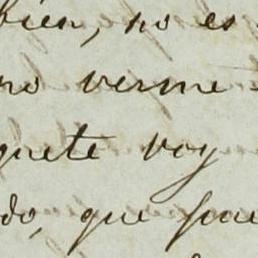 bien, no es
no verme
quete voy
do, que